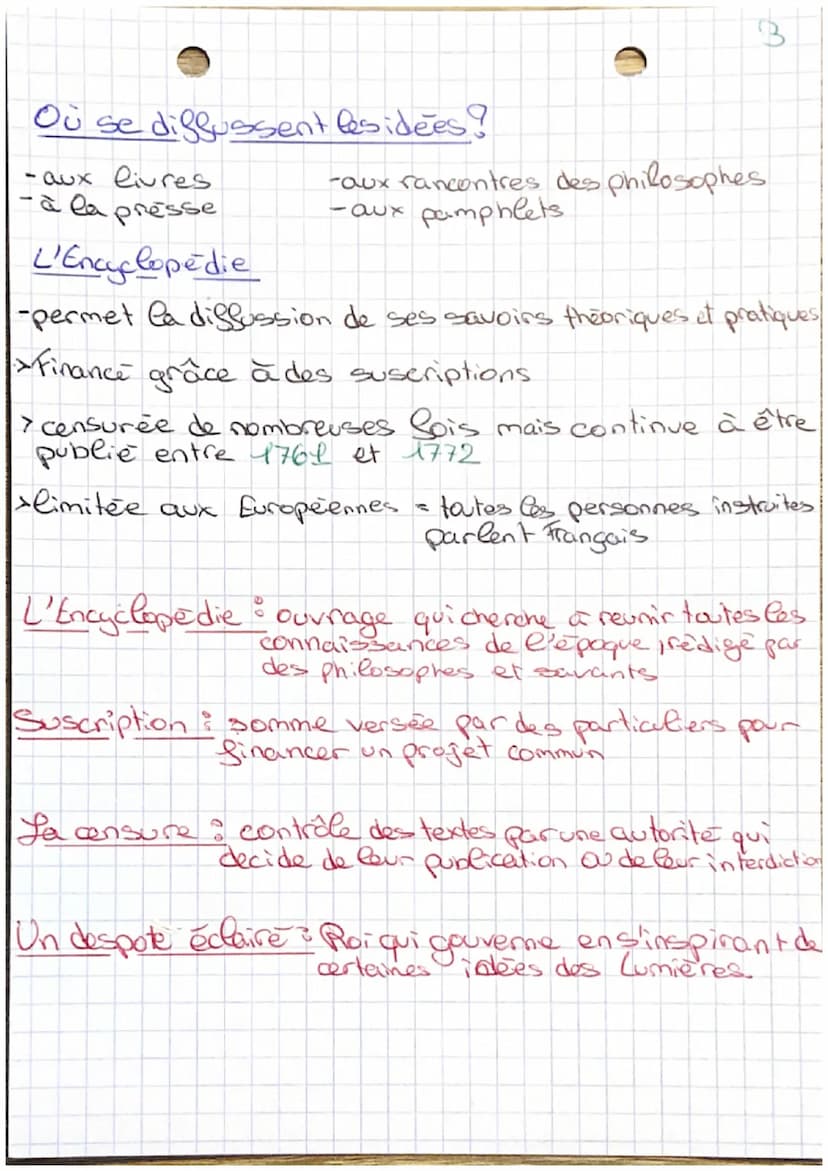 3
Où se diffussent les idées?
-aux livres
-à la presse
-aux rancontres des philosophes
-aux pamphlets
L'Encyclopédie
-permet la diffussion de ses savoirs théoriques et pratiques
>financé grâce à des suscriptions
> censurée de nombreuses fois mais continue à être
publié entre 1761 et 1772
>limitée aux Européennes = toutes les personnes instruites
parlent Français
L'Encyclopédie : ouvrage qui cherche à reunir toutes les
connaissances de l'époque, rédigé par
des philosophes et savants
Suscription : somme versée par des particuliers pour
financer un projet commun
La censure : contrôle des textes par une autorité qui
decide de leur publication ou de leur interdiction
Un despote éclairé : Roi qui gouverne en s'inspirant de
certaines idées des Lumières.